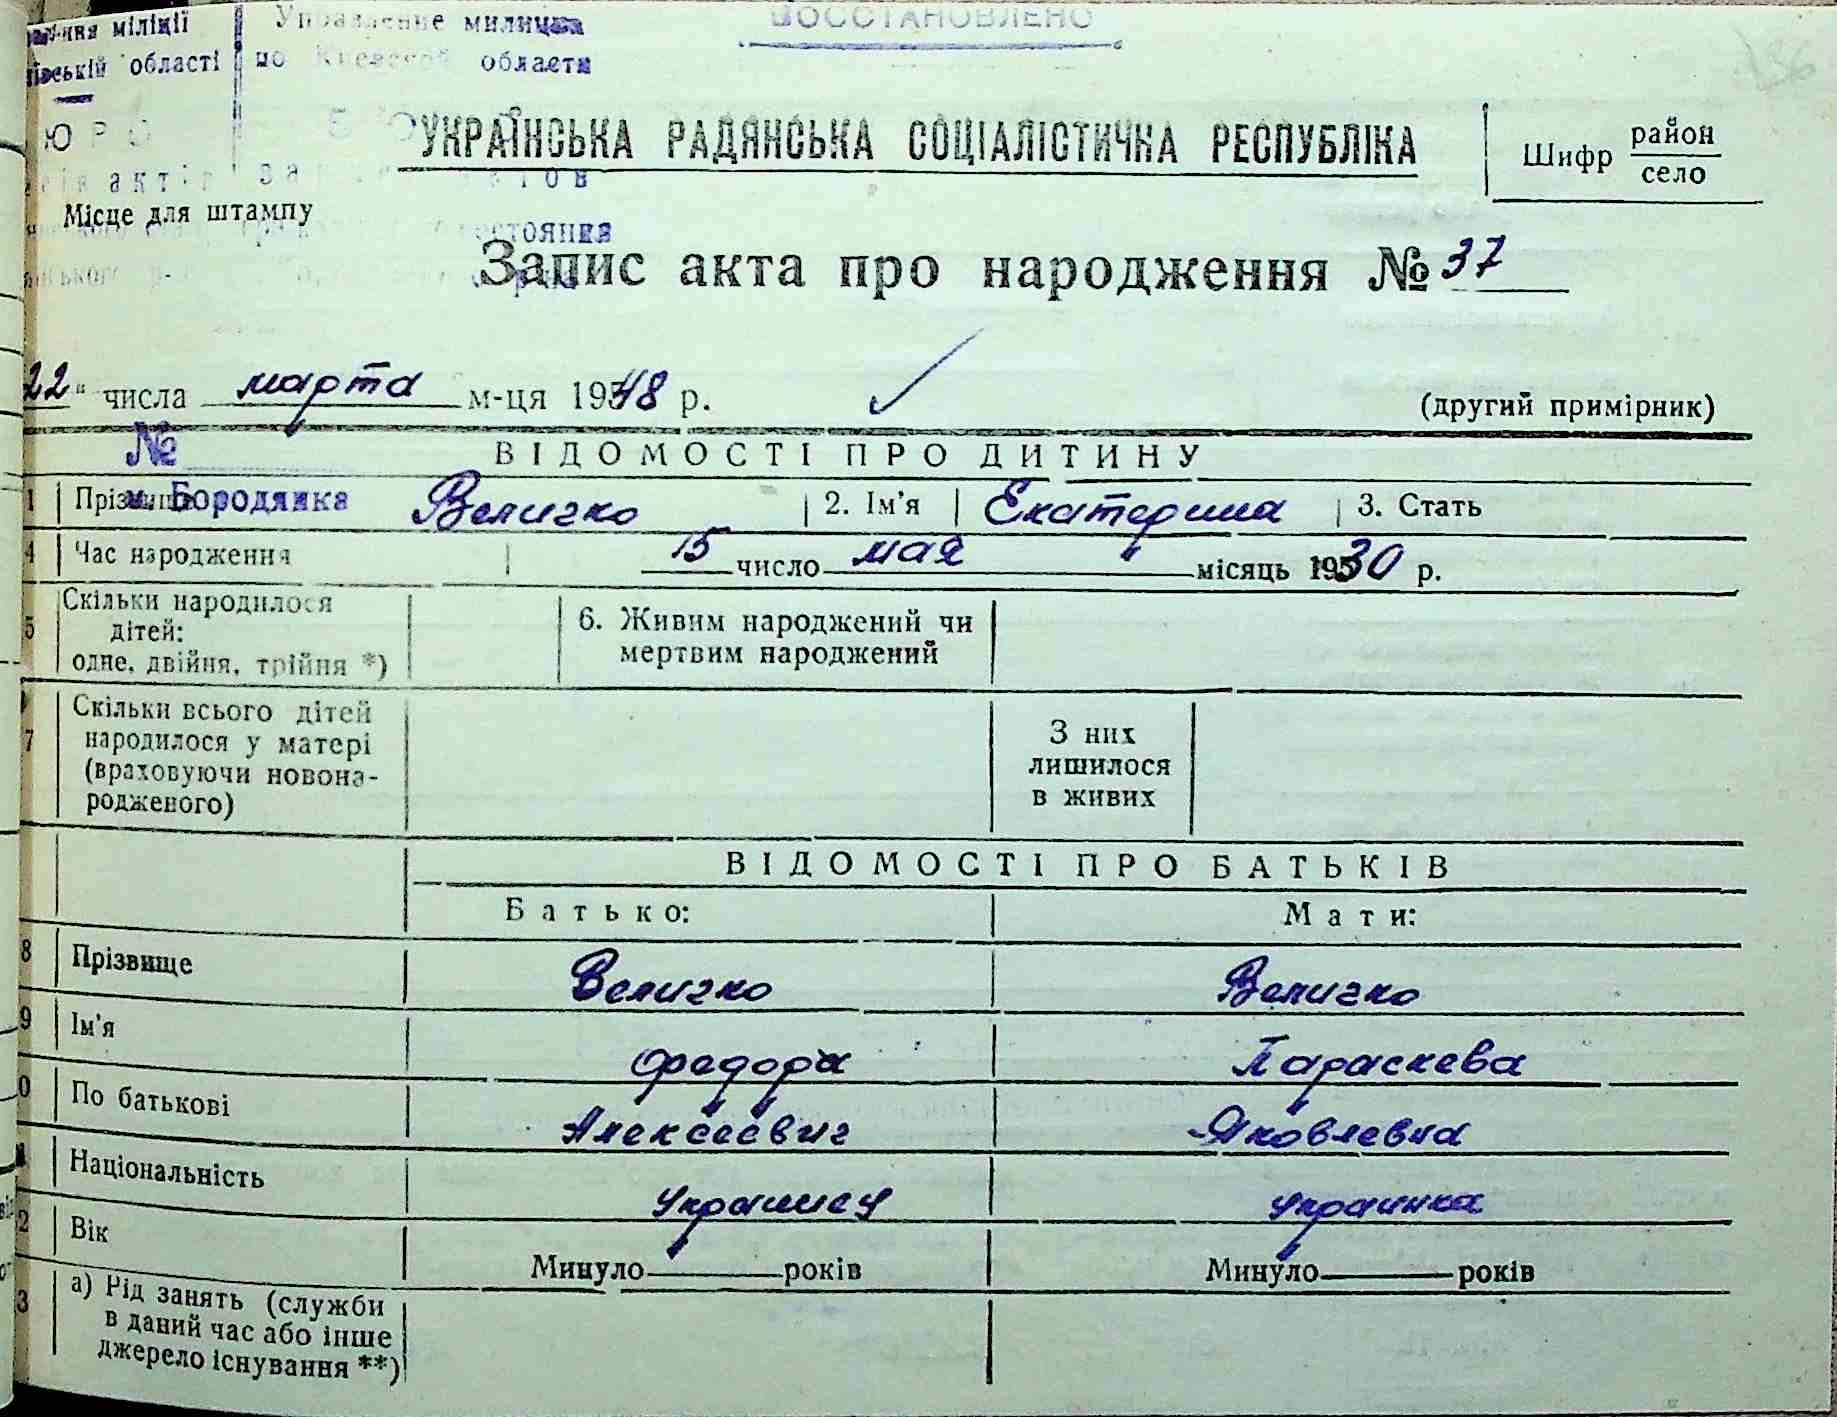 міліції Управление милиции
області по Киевской области
ВОССТАНОВЛЕНО
136
УКРАЇНСЬКА РАДЯНСЬКА СОЦІАЛІСТИЧНА РЕСПУБЛІКА
Шифр район
село
Місце для штампу
состояния
Запис акта про народження № 37
22 " числа марта м-ця 1948 р.
(другий примірник)
№
ВІДОМОСТІ ПРО ДИТИНУ
м. Бородянка
1 Прізвище Величко 2. Ім'я Екатерина 3. Стать
4 Час народження 15 число мая місяць 1930 р.
5 Скільки народилося
дітей:
одне, двійня, трійня *)
6. Живим народжений чи
мертвим народжений
7 Скільки всього дітей
народилося у матері
(враховуючи новона-
родженого)
З них
лишилося
в живих
ВІДОМОСТІ ПРО БАТЬКІВ
Батько: Мати:
8 Прізвище Величко Величко
9 Ім'я Федора Параскева
0 По батькові Алексеевич Яковлевна
Національність украинец украинка
2 Вік Минуло років Минуло років
3 а) Рід занять (служби
в даний час або інше
джерело існування **)